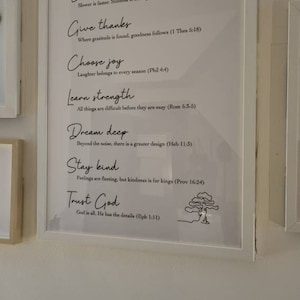 Slower is faster.
Give thanks
Where gratitude is found, goodness follows (1 Thes 5:18)
Choose joy
Laughter belongs to every season (Phil 4:4)
Learn strength
All things are difficult before they are easy (Rom 5:3-5)
Dream deep
Beyond the noise, there is a greater design (Heb 11:3)
Stay kind
Feelings are fleeting, but kindness is for kings (Prov 16:24)
Trust God
God is all. He has the details (Eph 1:11)